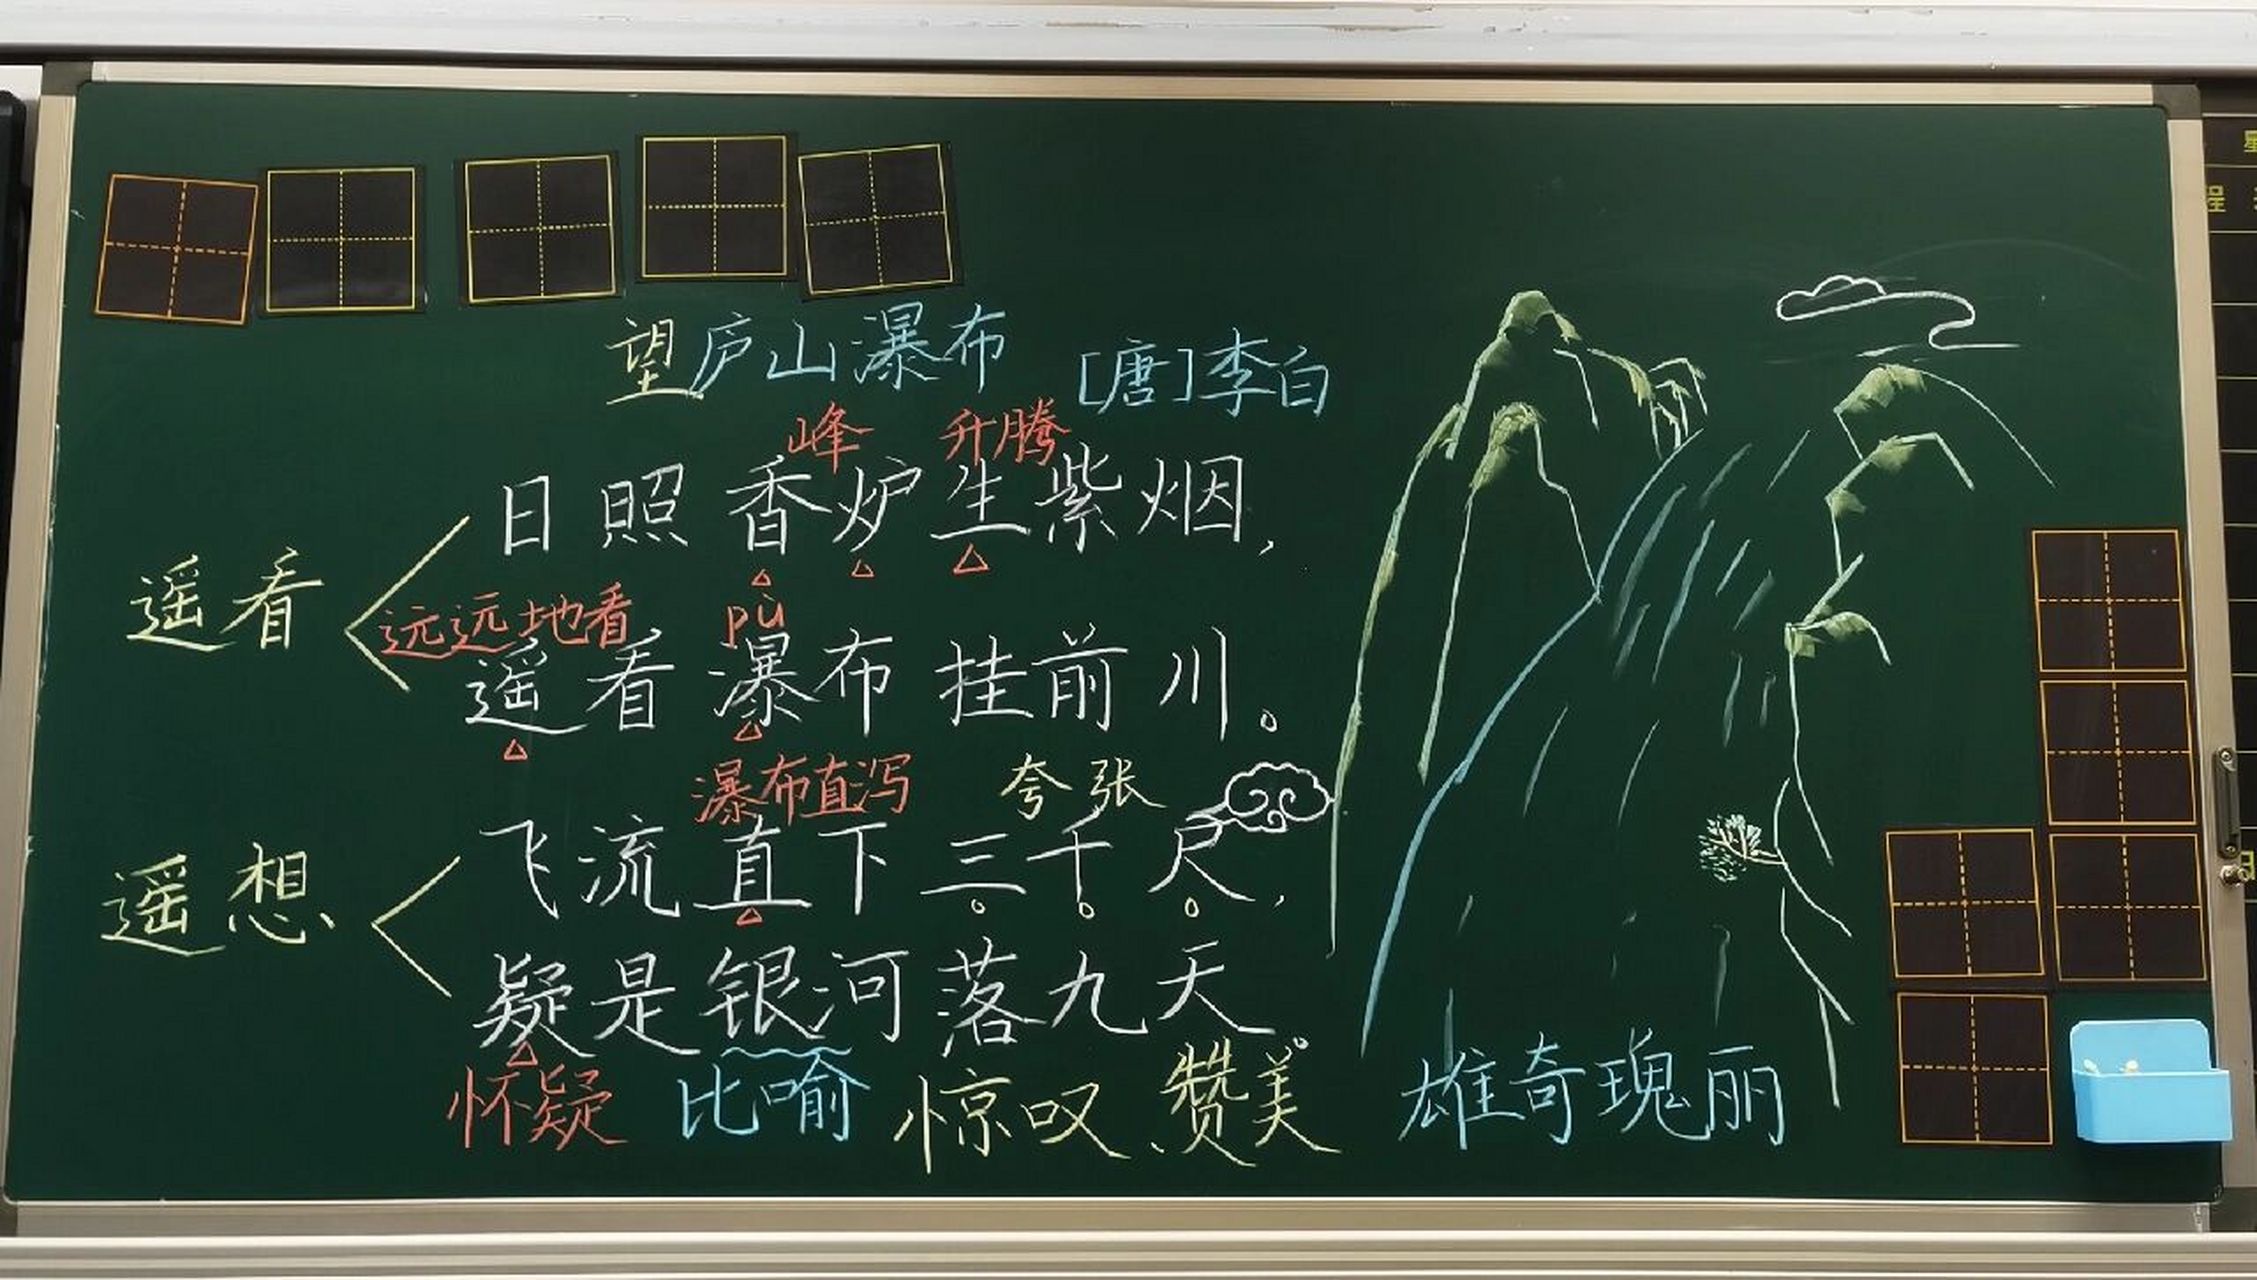 望庐山瀑布 [唐]李白
峰 升腾
日照香炉生紫烟，
遥看
远远地看 pù
遥看瀑布挂前川。
瀑布直泻 夸张
飞流直下三千尺，
遥想
疑是银河落九天。
怀疑 比喻 惊叹 赞美 雄奇瑰丽
程